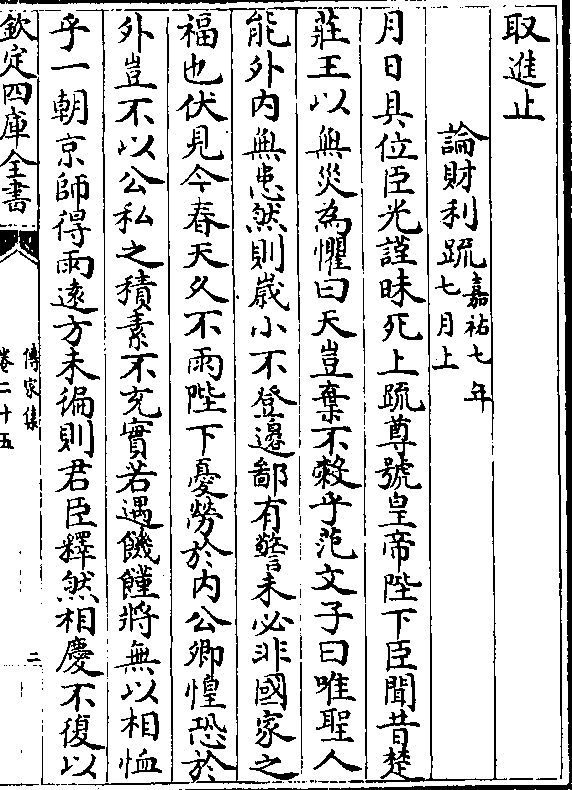 取進止
論財利疏嘉祐七年
七月上
月日具位臣光謹昧死上疏尊號皇帝陛下臣聞昔楚
莊王以無災為懼曰天豈棄不穀乎范文子曰唯聖人
能外内無患然則嵗小不登邊鄙有警未必非國家之
福也伏見今春天久不雨陛下憂勞於内公卿惶恐於
外豈不以公私之積素不充實若遇饑饉將無以相恤
乎一朝京師得雨逺方未徧則君臣釋然相慶不復以
欽定四庫全書
傳家集
卷二十五
二